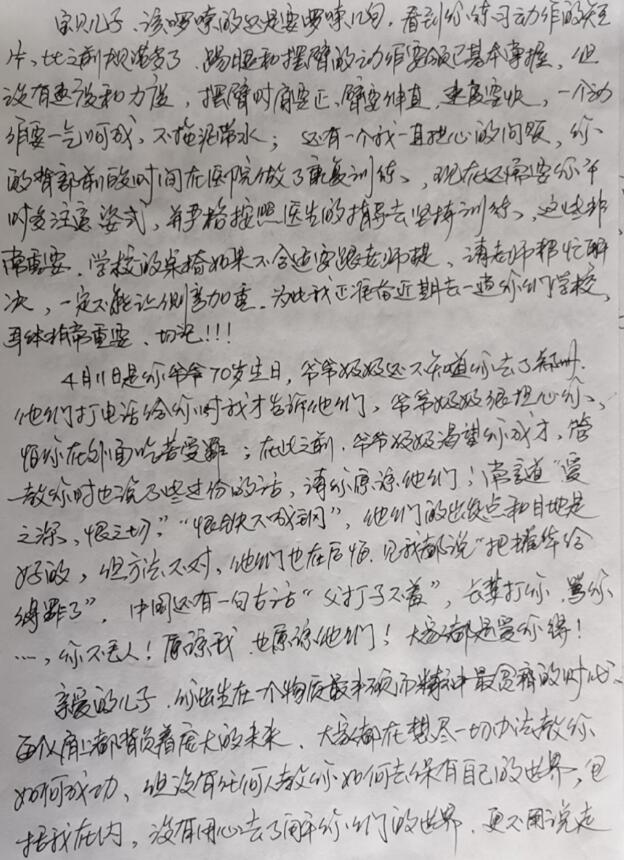 宝贝儿子,该啰嗦的还是要啰嗦几句,看到你练习动作的短
片,比之前规范多了,踢腿和摆臂的动作要领已基本掌握,但
没有速度和力度,摆臂时肩要正、臂要伸直,速度要快,一个动
作要一气呵成,不拖泥带水;还有一个我一直担心的问题,你
的背部前段时间在医院做了康复训练,现在还需要你平
时多注意姿式,并严格按照医生的指导去坚持训练,这些非
常重要,学校的桌椅如果不合适要跟老师提,请老师帮忙解
决,一定不能让侧弯加重,为此我正准备近期去一趟你们学校,
身体非常重要,切记!!!
4月11日是你爷爷70岁生日,爷爷奶奶还不知道你去了郑州,
他们打电话给你时我才告诉他们,爷爷奶奶很担心你,
怕你在外面吃苦受罪;在此之前,爷爷奶奶渴望你成才,管
教你时也说了些过份的话,请你原谅他们!常言道“爱
之深,恨之切”“恨铁不成钢”,他们的出发点和目地是
好的,但方法不对,他们也在后悔,见我都说“把耀华给
得罪了”,中国还有一句古话“父打子不羞”,长辈打你、骂你
…,你不丢人!原谅我,也原谅他们!大家都是爱你得!
亲爱的儿子,你出生在一个物质最丰硕而精神最贫瘠的时代,
每个人肩上都背负着庞大的未来,大家都在想尽一切办法教你
如何成功,但没有任何人教你如何去保有自己的世界,包
括我在内,没有用心去了解你们的世界,更不用说走